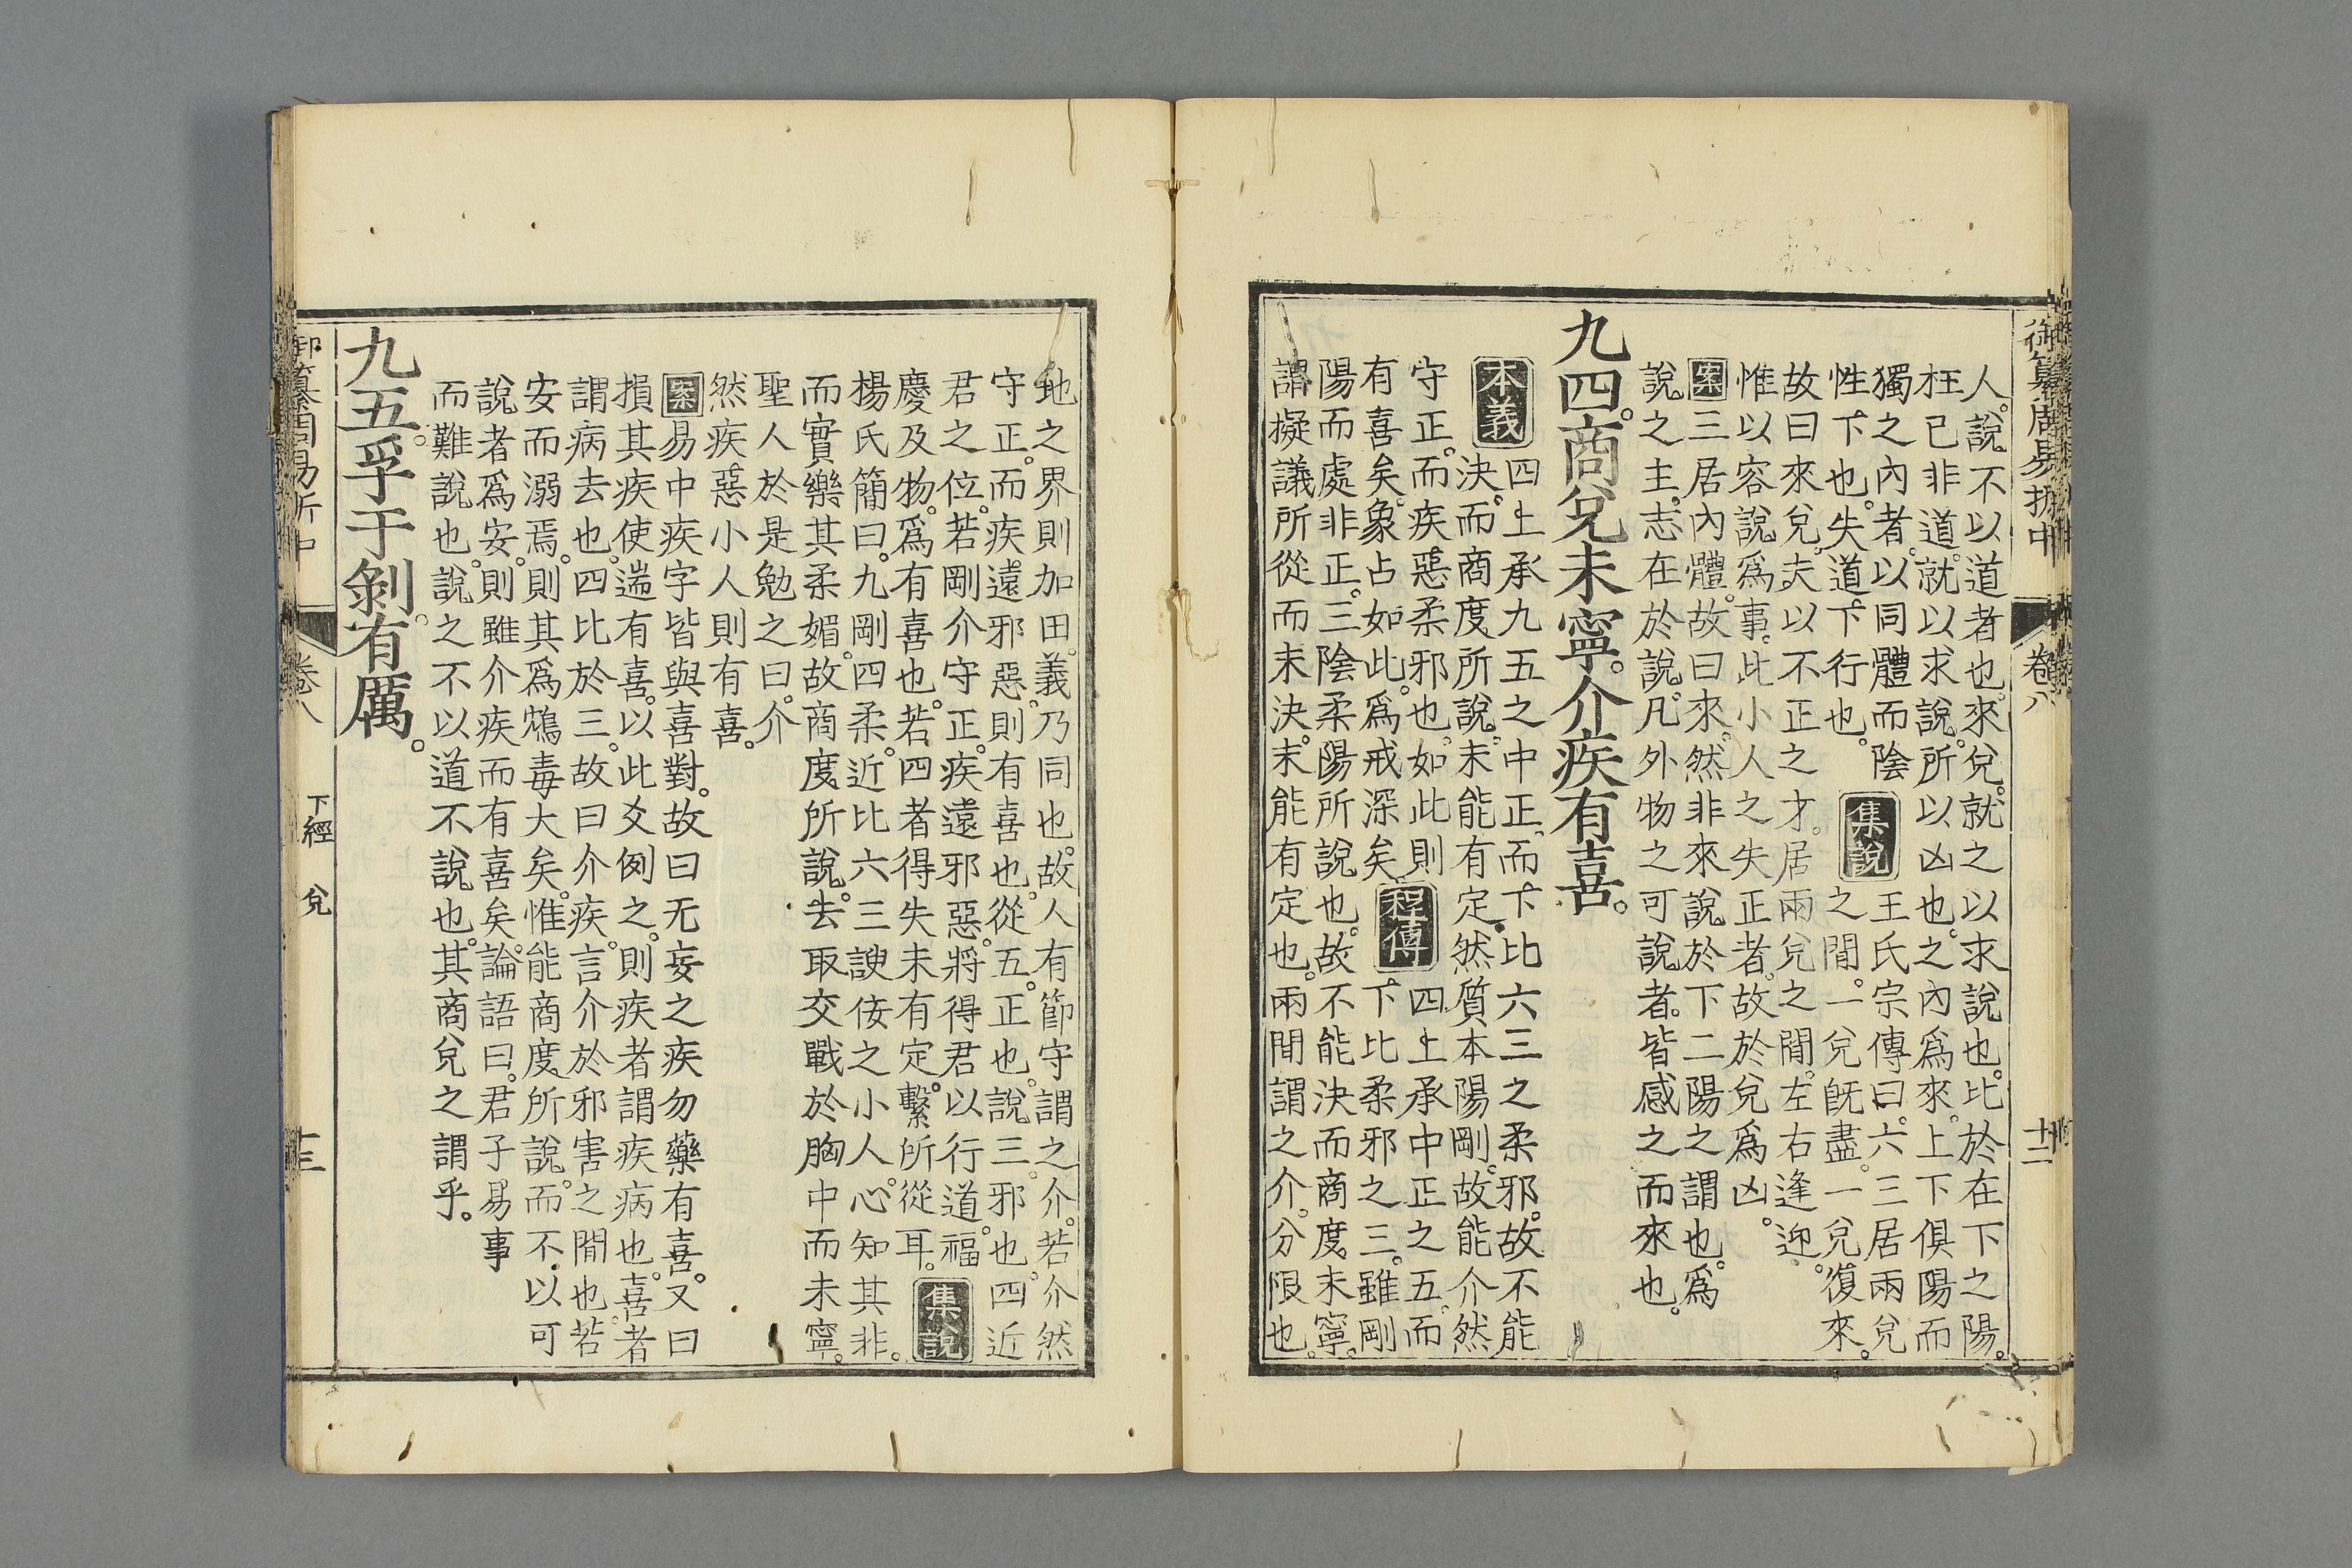 御纂周易折中
卷八
十二
人。說不以道者也。來兌。就之以求說也。比於在下之陽。
枉己非道。就以求說。所以凶也。之內爲來。上下俱陽而
獨之內者。以同體而陰
性下也。失道下行也。
集說
王氏宗傳曰。六三居兩兌
之閒。一兌旣盡。一兌復來。
故曰來兌。夫以不正之才。居兩兌之閒。左右逢迎。
惟以容說爲事。此小人之失正者。故於兌爲凶。
案三居內體。故曰來。然非來說於下二陽之謂也。爲
說之主。志在於說。凡外物之可說者。皆感之而來也。
九四。商兌未寧。介疾有喜。
本義
四上承九五之中正。而下比六三之柔邪。故不能
決。而商度所說。未能有定。然質本陽剛。故能介然
守正。而疾惡柔邪也。如此則
有喜矣。象占如此。爲戒深矣
程傳
四上承中正之五。而
下比柔邪之三。雖剛
陽而處非正。三陰柔陽所說也。故不能決而商度。未寧。
謂擬議所從而未決。未能有定也。兩閒謂之介。分限也。
地之界則加田。義乃同也。故人有節守謂之介。若介然
守正。而疾遠邪惡。則有喜也。從五。正也。說三。邪也。四近
君之位。若剛介守正。疾遠邪惡。將得君以行道。福
慶及物。爲有喜也。若四者得失未有定。繫所從耳。
集說
楊氏簡曰。九剛四柔。近比六三諛佞之小人。心知其非。
而實樂其柔媚。故商度所說。去取交戰於胸中而未寧。
聖人於是勉之曰。介
然疾惡小人則有喜。
案易中疾字皆與喜對。故曰无妄之疾勿藥有喜。又曰
損其疾使遄有喜。以此爻例之。則疾者謂疾病也。喜者
謂病去也。四比於三。故曰介疾。言介於邪害之閒也。若
安而溺焉。則其爲鴆毒大矣。惟能商度所說。而不以可
說者爲安。則雖介疾而有喜矣。論語曰。君子易事
而難說也。說之不以道不說也。其商兌之謂乎。
九五。孚于剝。有厲。
御纂周易折中
卷八
下經
兌
十三